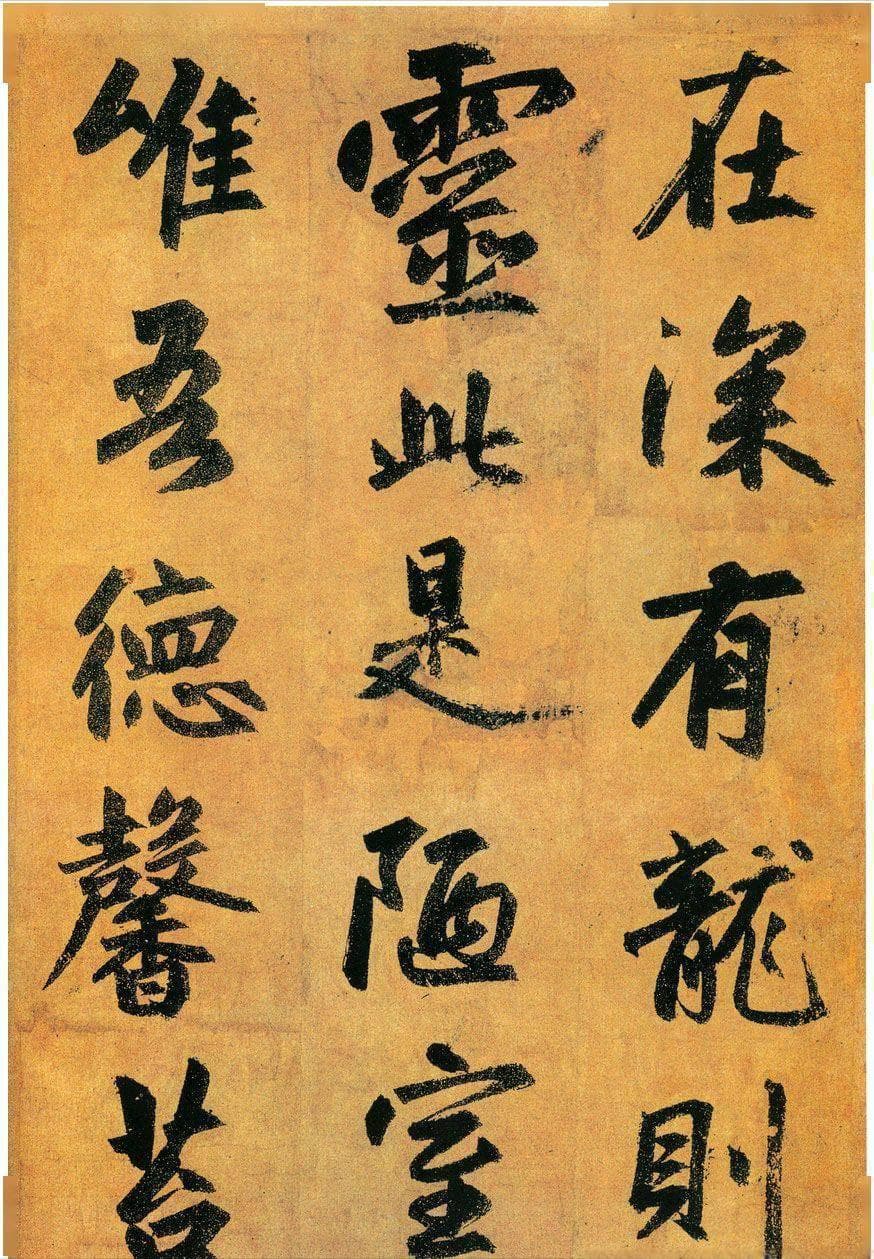 在深有龍則
靈此是陋室
唯吾德馨苔